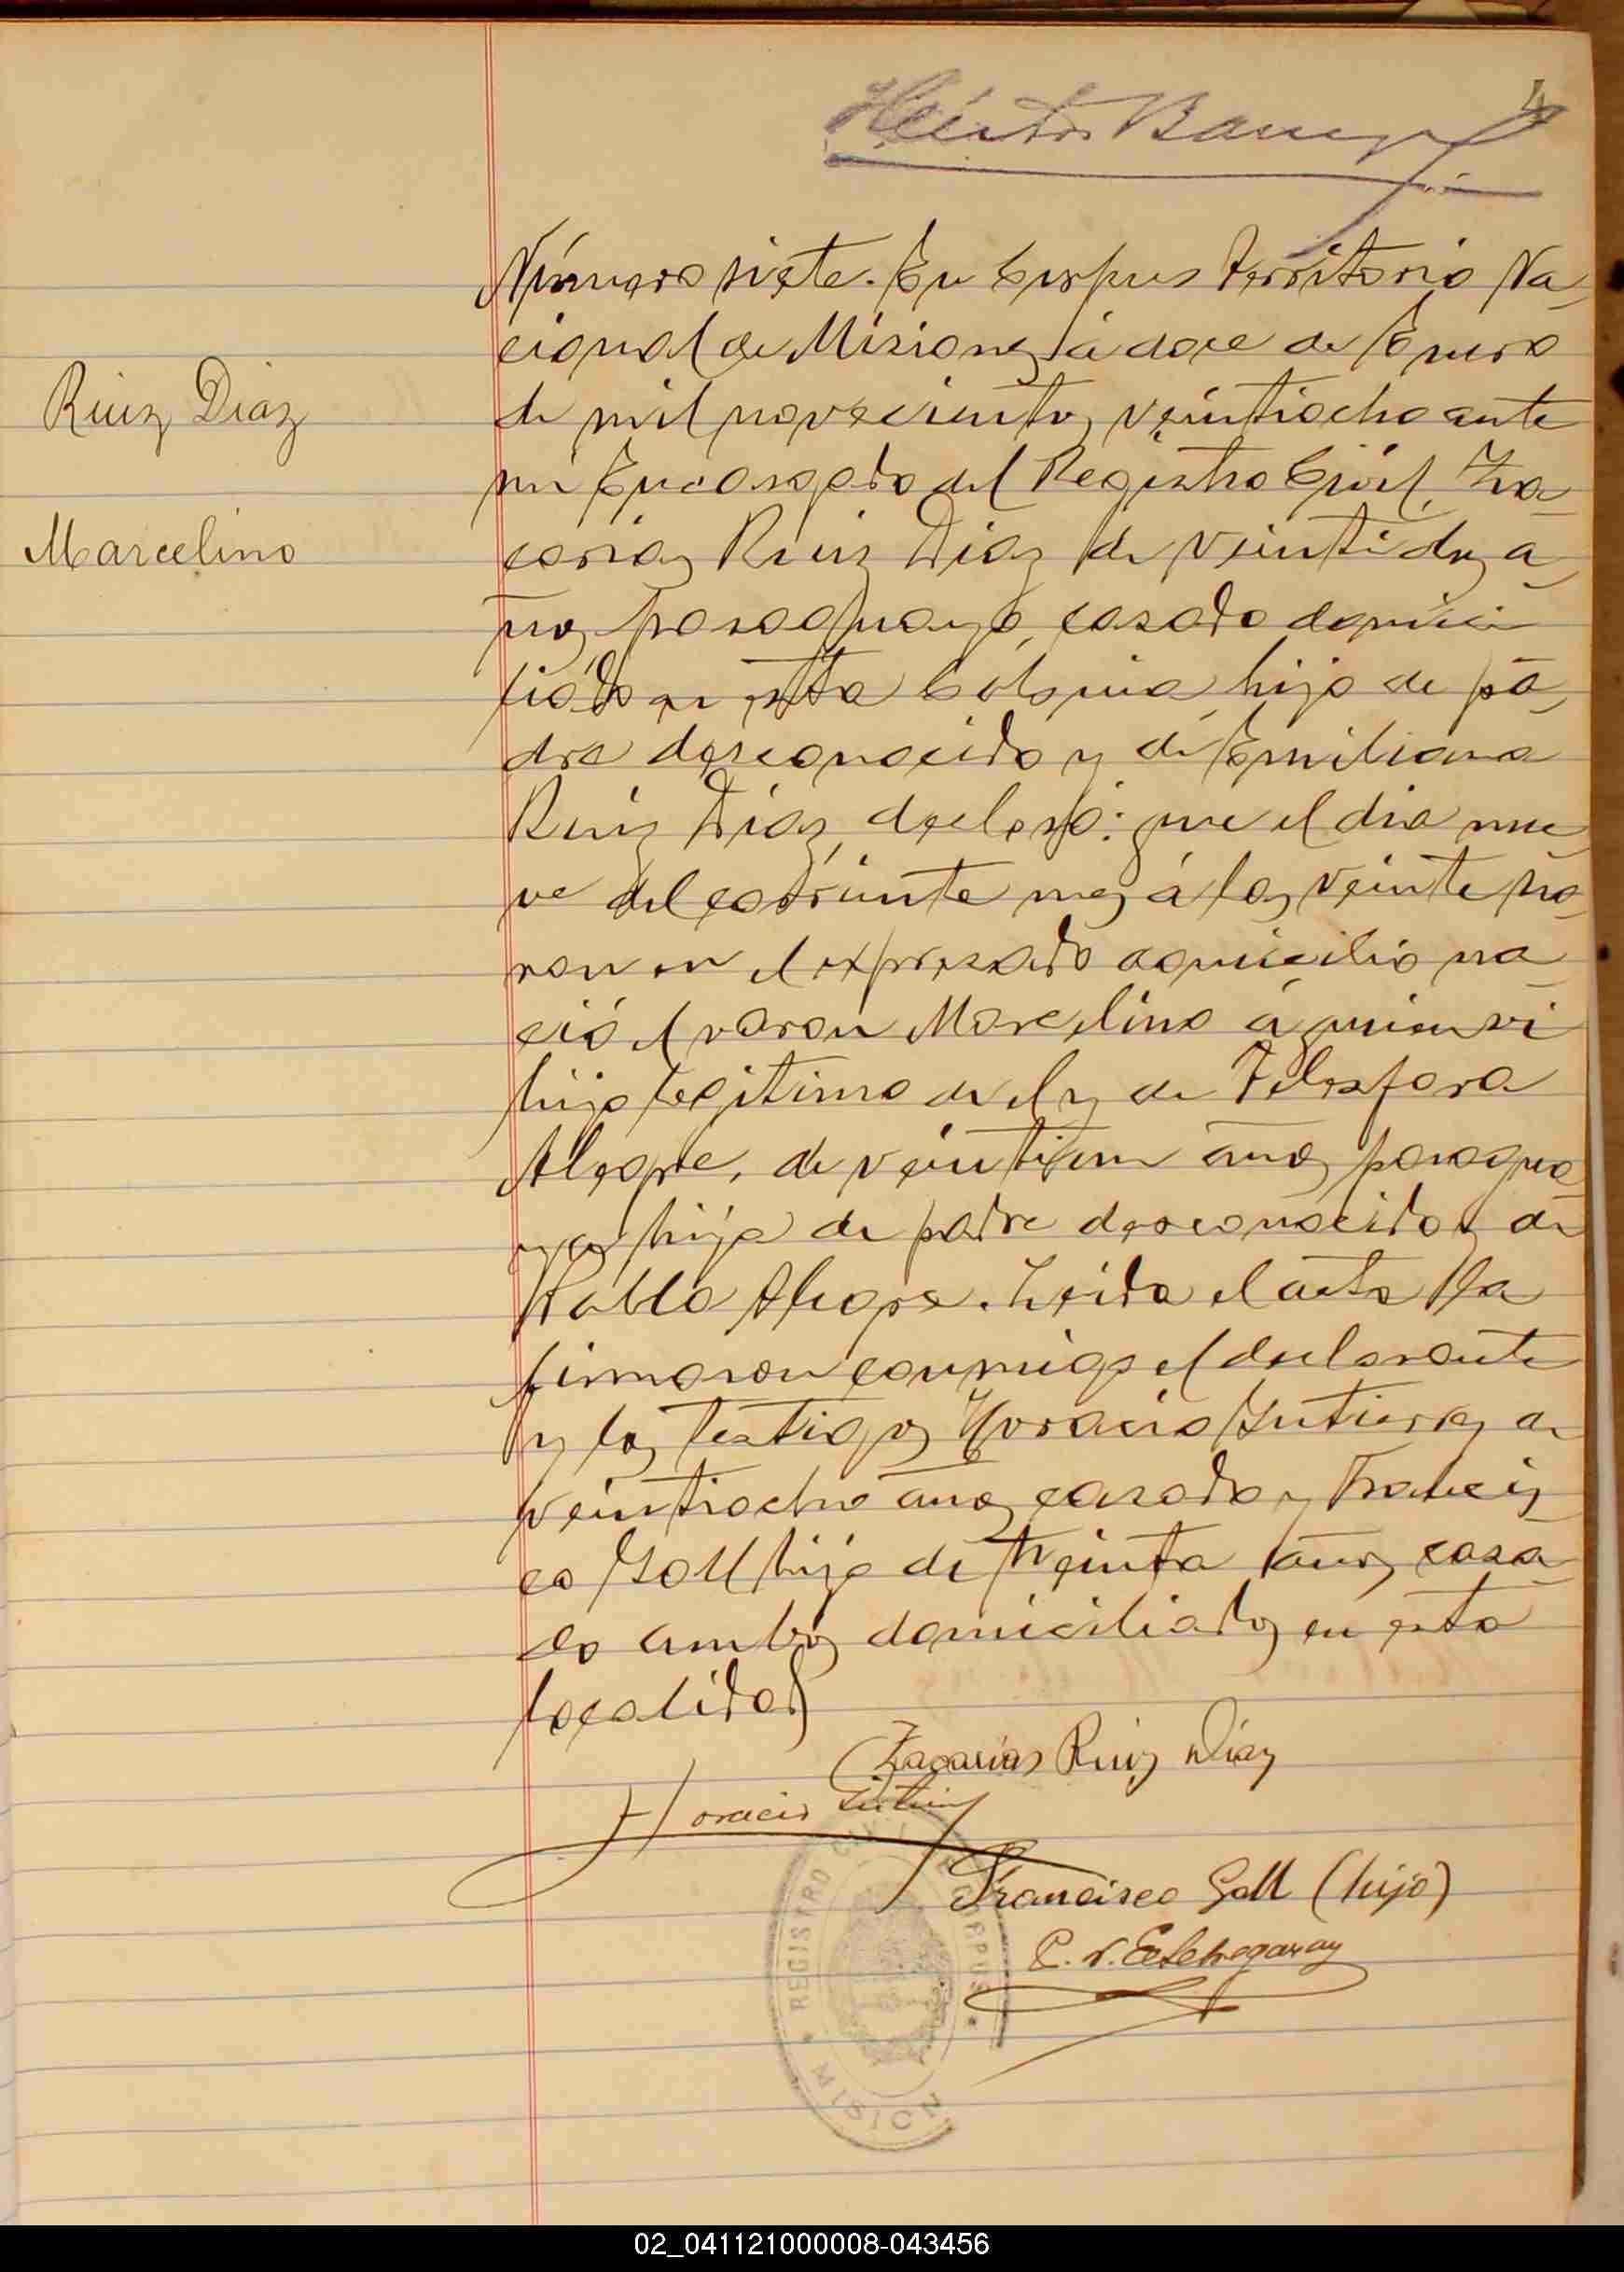 4
Héctor
Número siete. En Corpus Territorio Na-
cional de Misiones á doce de Enero
de mil novecientos veintiocho ante
Ruiz Diaz
mi Encargado del Registro Civil, Za-
Marcelino
carias Ruiz Diaz de veintidos a-
ños, paraguayo, casado domici
liado en esta Colonia, hijo de pa-
dre desconocido y de Emiliana
Ruiz Diaz, declaró: que el dia nue-
ve del corriente mes á las veinte ho-
ras en el expresado domicilio na-
ció el varon Marcelino á quien vi
hijo legitimo de el y de Telesfora
Alegre, de veintiun años paragua-
ya, hija de padre desconocido y de
Pabla Alegre. Leida el acta la
firmaron conmigo el declarante
y los testigos Horacio Gutierrez de
veintiocho años casado y Francis-
co Goll hijo de treinta años casa-
do ambos domiciliados en esta
localidad
Zacarias Ruiz Diaz
Horacio Gutierrez
Francisco Goll (hijo)
P. V. Etchegaray
REGISTRO CIVIL CORPUS
MISION
02_041121000008-043456